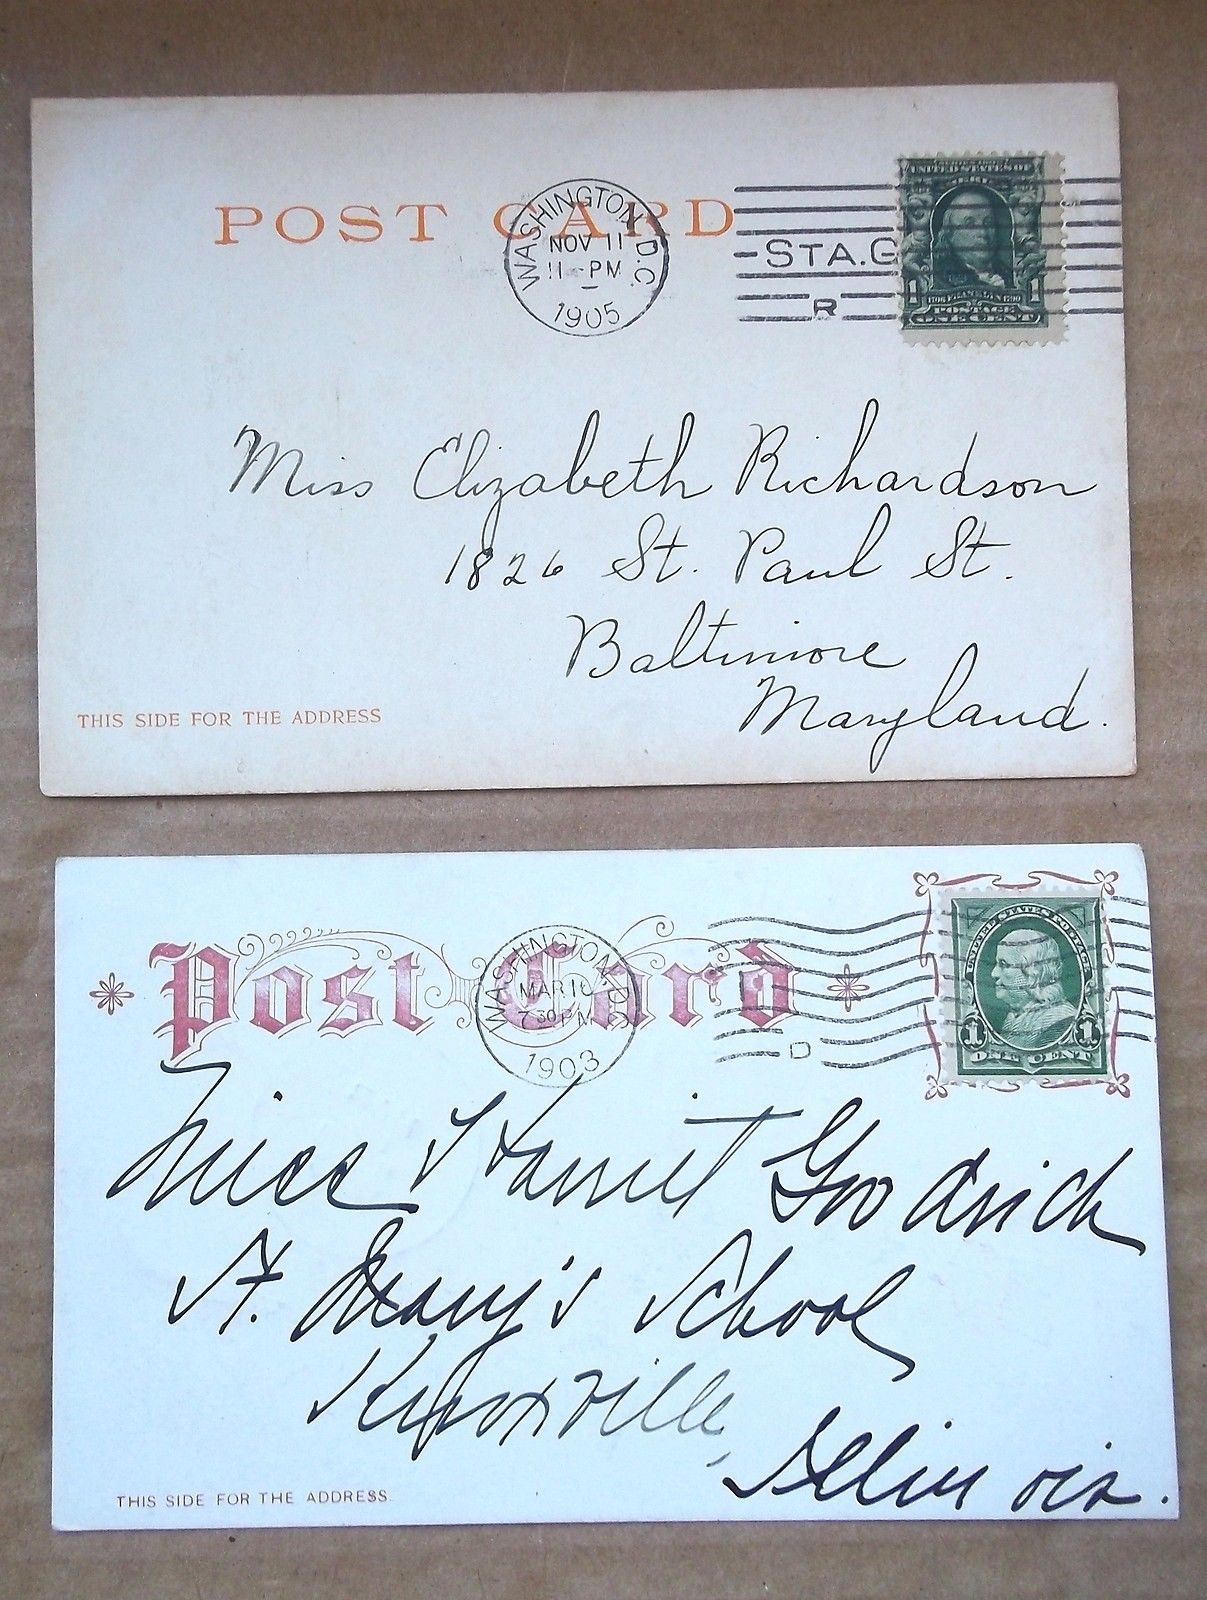 POST CARD
WASHINGTON, D.C.
NOV 11
11 - PM
1905
STA. G
R
SERIES 1902
UNITED STATES OF AMERICA
1 1706 FRANKLIN 1790 1
POSTAGE
ONE CENT
Miss Elizabeth Richardson
1826 St. Paul St.
Baltimore
Maryland.
THIS SIDE FOR THE ADDRESS
Post Card
WASHINGTON, D.C.
MAR 10
7 30 PM
1903
D
UNITED STATES POSTAGE
1 1
ONE CENT
Miss Harriet Goodrich
St. Mary's School
Knoxville,
Illinois.
THIS SIDE FOR THE ADDRESS.